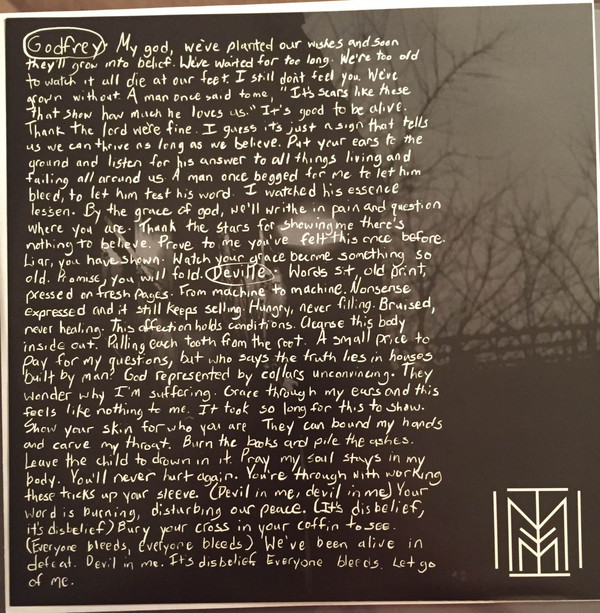 Godfrey. My god, we've planted our wishes and soon
they'll grow into belief. We've waited for too long. We're too old
to watch it all die at our feet. I still don't feel you. We've
grown without. A man once said to me, "It's scars like these
that show how much he loves us." It's good to be alive.
Thank the lord we're fine. I guess it's just a sign that tells
us we can thrive as long as we believe. Put your ears to the
ground and listen for his answer to all things living and
failing all around us. A man once begged for me to let him
bleed, to let him test his word. I watched his essence
lessen. By the grace of god, we'll writhe in pain and question
where you are. Thank the stars for showing me there's
nothing to believe. Prove to me you've felt this once before.
Liar, you have shown. Watch your grace become something so
old. Promise, you will fold. Deville. Words sit, old print,
pressed on fresh pages. From machine to machine. Nonsense
expressed and it still keeps selling. Hungry, never filling. Bruised,
never healing. This affection holds conditions. Cleanse this body
inside out. Pulling each tooth from the root. A small price to
pay for my questions, but who says the truth lies in houses
built by man? God represented by collars unconvincing. They
wonder why I'm suffering. Grace through my ears and this
feels like nothing to me. It took so long for this to show.
Show your skin for who you are. They can bound my hands
and carve my throat. Burn the books and pile the ashes.
Leave the child to drown in it. Pray my soul stays in my
body. You'll never hurt again. You're through with working
these tricks up your sleeve. (Devil in me, devil in me) Your
word is burning, disturbing our peace. (It's disbelief,
it's disbelief) Bury your cross in your coffin to see.
(Everyone bleeds, everyone bleeds) We've been alive in
defeat. Devil in me. It's disbelief. Everyone bleeds. Let go
of me.